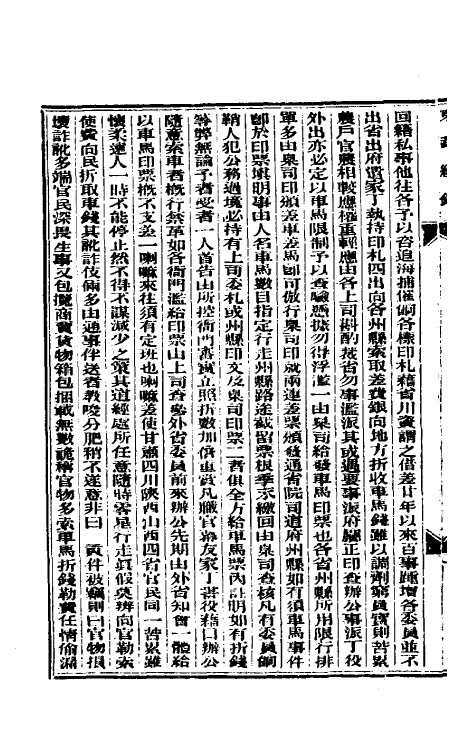 回籍私事他往各予以咨追海捕催餉各樣印札藉省川資謂之借差廿年以來百事踵增各委員並不
出省出府僱家丁執持印札四出向各州縣索取差費銀向地方折收車馬錢雖以調劑窮員實則苦累
農戶官農相較應權重輕應由各上司斟酌裁省勿事濫派其或遇要事派府廳正印查辦公事派丁役
外出亦必定以車馬限制予以查驗憑據勿得浮濫一由臬司給發車馬印票也各省州縣所用限行排
單多由臬司印頒差車差馬卽可倣行臬司印就兩連差票頒發通省院司道府州縣如有須車馬事件
卽於印票填明事由人名車馬數目指定行走州縣路途截留票根季末繳回由臬司查核凡有委員餉
鞘人犯公務過境必持有上司委札或州縣印文及臬司印票二者俱全方給車馬票內註明如有折錢
等弊無論予者受者一人首告由所控衙門審實立照折數加倍重賞凡職官幕友家丁書役藉口辦公
隨意索車者概行禁革如各衙門濫給印票由上司查參外省委員前來辦公先期由外省知會一體給
以車馬印票概不支差一喇嘛來往須有定班也喇嘛差使甘肅四川陝西山西四省官民同一苦累雖
懷柔遠人一時不能停止然不得不謀減少之策其道經處所任意隨時零星行走真假莫辨向官勒索
使費向民折取車錢其訛詐伎倆多由通事伴送者教唆分肥稍不遂意非曰貢件被竊則曰官物損
壞詐訛多端官民深畏生事又包攬商賈貨物箱包捆載無數詭稱官物多索車馬折錢勒費任情偷漏